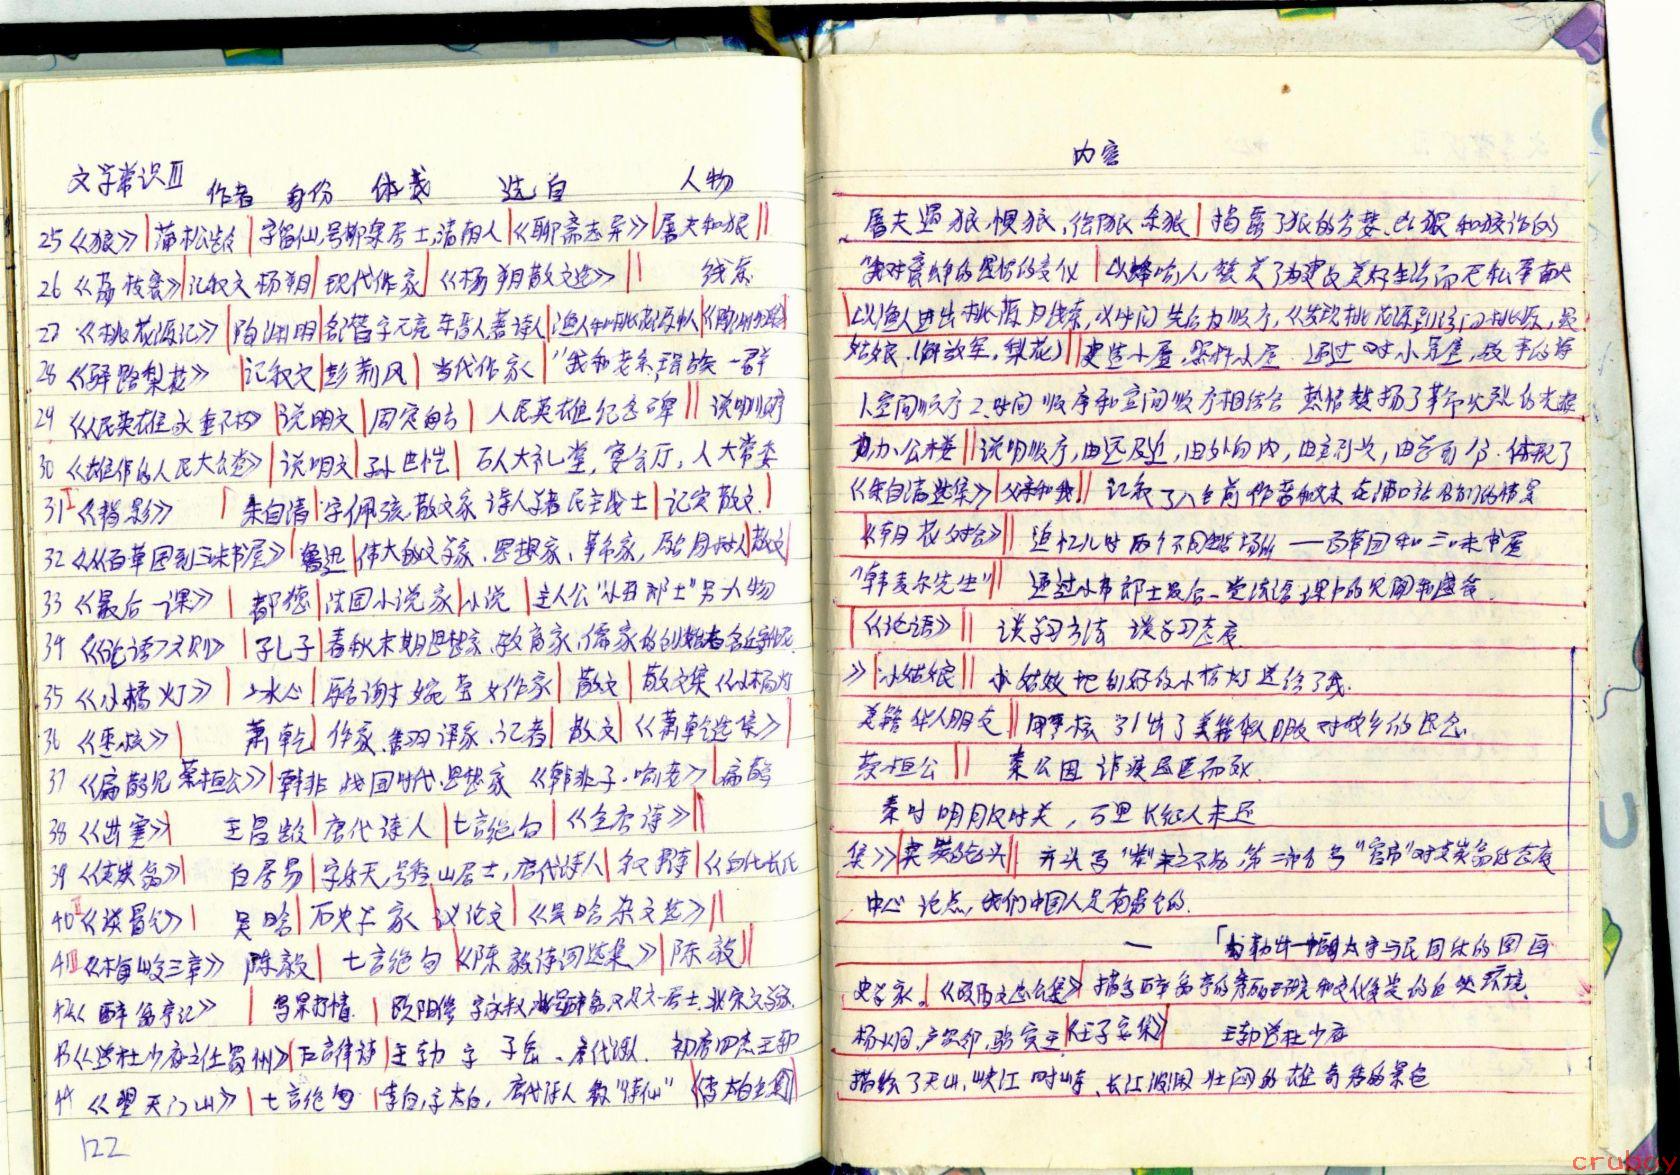 文学常识Ⅲ 作者 身份 体裁 选自 人物
25《狼》|蒲松龄|字留仙,号柳泉居士,清朝人|《聊斋志异》|屠夫和狼||
26《荔枝蜜》|记叙文 杨朔|现代作家|《杨朔散文选》|| 线索
27《桃花源记》|陶渊明|名潜字元亮 东晋人著诗人|渔人和桃花源中人|
28《驿路梨花》 记叙文|彭荆风|当代作家|"我和老余,瑶族一群
29《人民英雄永垂不朽》|说明文|周定舫|人民英雄纪念碑||说明顺序
30《雄伟的人民大会堂》|说明文|孙世恺|万人大礼堂,宴会厅,人大常委
31《背影》|朱自清|字佩弦,散文家 诗人 学者 民主战士|记实散文|
32《从百草园到三味书屋》|鲁迅|伟大的文学家、思想家、革命家,原名周树人|散文
33《最后一课》|都德|法国小说家|小说|主人公"小弗郎士"另人物
34《〈论语〉六则》|孔子|春秋末期思想家、教育家、儒家的创始者 名丘字仲尼
35《小橘灯》|冰心|原名谢婉莹 女作家|散文|散文集《小橘灯
36《枣核》|萧乾|作家、翻译家、记者|散文|《萧乾选集》|
37《扁鹊见蔡桓公》|韩非 战国时代思想家《韩非子·喻老》|扁鹊
38《出塞》|王昌龄|唐代诗人|七言绝句|《全唐诗》||
39《卖炭翁》|白居易|字乐天,号香山居士,唐代诗人|叙事|《白氏长氏
40《谈骨气》|吴晗|历史学家|议论文|《吴晗杂文选》||
41《梅岭三章》陈毅|七言绝句《陈毅诗词选集》|陈毅||
42《醉翁亭记》|写景抒情.|欧阳修 字永叔,号醉翁,又六一居士,北宋文学家.
43《送杜少府之任蜀州》|五言律诗|王勃 字 子安、唐代诗人. 初唐四杰王勃
44《望天门山》|七言绝句|李白,字太白,唐代诗人 "诗仙"《李太白全集
122
内容
屠夫遇狼,惧狼,御狼,杀狼|揭露了狼的贪婪、凶狠和狡诈的
"我对蜜蜂的思想的变化|以蜂喻人,赞美了为建设美好生活而无私奉献
|以渔人进出桃源为线索,以时间先后为顺序,《发现桃花源到 桃源,
姑娘.(解放军,梨花)||建造小屋,照料小屋.通过对小茅屋,故事的
1.空间顺序 2.时间顺序和空间顺序相结合 热情赞扬了革命先烈的
办公楼||说明顺序,由远及近,由外向内,由主到次, 体现了
《朱自清选集》|父亲和我|| 记叙了八年前作者和父亲在浦口站 的情景
《朝花夕拾》|| 追忆儿时两个不同 场所——百草园和三味书屋
"韩麦尔先生"|| 通过小弗郎士最后一堂法语课上的见闻和感受.
|《论语》|| 谈学习方法 谈学习态度
》|小姑娘|| 小姑娘把制好的小橘灯送给了我.
美籍华人朋友|| 用枣核引出了美籍华人朋友对故乡的思念
蔡桓公|| 蔡公因讳疾忌医而死.
秦时明月汉时关,万里长征人未还
集》|卖炭老头|| 开头写"炭"来之不易,第二部分写"宫市"对卖炭翁的态度
中心论点,我们中国人是有骨气的.
一幅太守与民同乐的图画
史学家.《欧阳文忠公集》描写醉翁亭的秀丽 和变化多姿的自然环境.
杨炯,卢照邻,骆宾王|《王子安集》 王勃送杜少府
描绘了天山,峡江 对峙,长江波澜壮阔的雄奇秀丽景色
cruboy